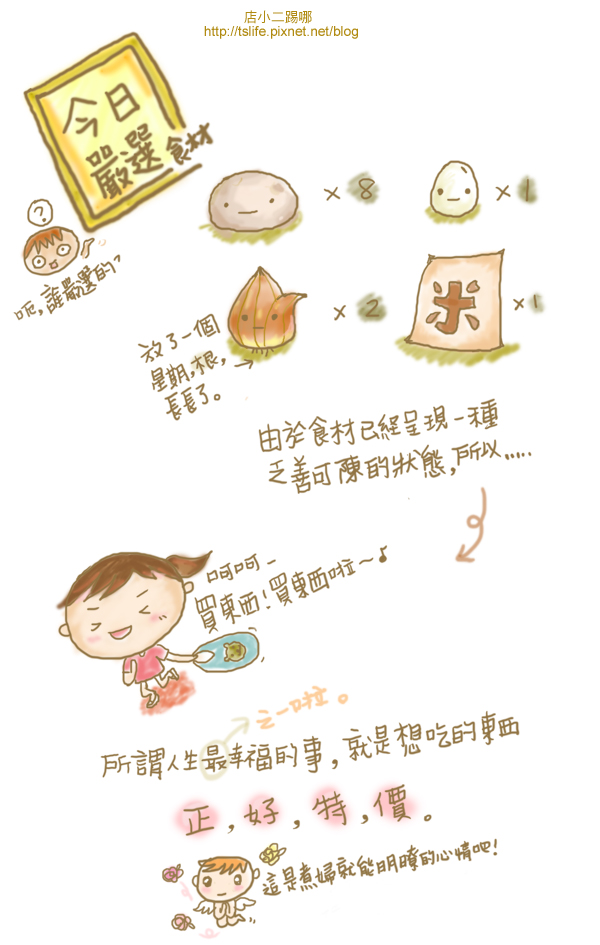 店小二踢哪
http://tslife.pixnet.net/blog
今日
嚴選食材
?
呃,誰嚴選的?
×8
×1
×2
米
×1
放了一個
星期,根,
長長了。
由於食材已經呈現一種
乏善可陳的狀態,所以.....
呵呵~
買東西!買東西啦~♪
之一啦。
所謂人生最幸福的事,就是想吃的東西
正,好,特,價。
這是煮婦就能明瞭的心情吧!